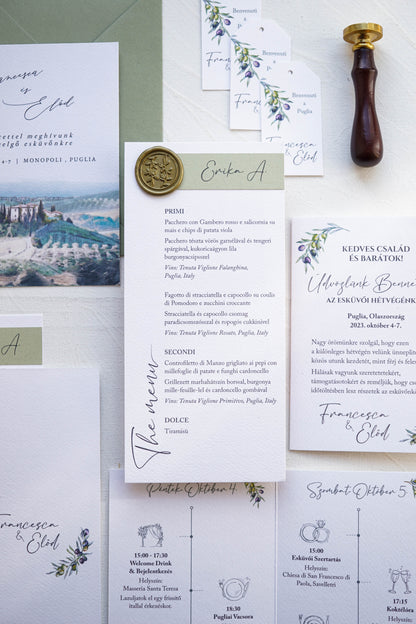 Francesca
és
Előd
4-7 | MONOPOLI, PUGLIA
Benvenuti
Benvenuti
Benvenuti
a
Puglia
Francesca
&
Előd
Erika A.
The menu
PRIMI
Pacchero con Gambero rosso e salicornia su
mais e chips di patata viola
Pacchero tészta vörös garnélával és tengeri
spárgával, kukoricaágyon lila
burgonyacsipszel
Vino: Tenuta Viglione Falanghina,
Puglia, Italy
Fagotto di stracciatella e capocollo su coulis
di Pomodoro e zucchini croccante
Stracciatella és capocollo csomag
paradicsomszósszal és ropogós cukkinivel
Vino: Tenuta Viglione Rosato, Puglia, Italy
SECONDI
Controfiletto di Manzo grigliato ai pepi con
millefoglie di patate e funghi cardoncello
Grillezett marhahátszín borssal, burgonya
mille-feuille-lel és cardoncello gombával
Vino: Tenuta Viglione Primitivo, Puglia, Italy
DOLCE
Tiramisù
KEDVES CSALÁD
ÉS BARÁTOK!
Üdvözlünk
AZ ESKÜVŐI HÉTVÉGÉNK
Puglia, Olaszország
2023. október 4-7.
Nagy örömünkre szolgál, hogy ezen
a különleges hétvégén velünk
közös utunk kezdetét, mint férj és
Hálásak vagyunk szeretetetekért,
támogatásotokért és reméljük, hogy
időtöltésben lesz részetek az
Francesca
&
Előd
A
Francesca
&
Előd
Péntek Október 4.
15:00 - 17:30
Welcome Drink
& Bejelentkezés
Helyszín:
Masseria Santa Teresa
Lazuljatok el egy frissítő
itallal érkezéskor.
18:30
Pugliai Vacsora
Szombat Október 5.
15:00
Esküvői Szertartás
Helyszín:
Chiesa di San Francesco di
Paola, Savelletri
17:15
Koktélóra